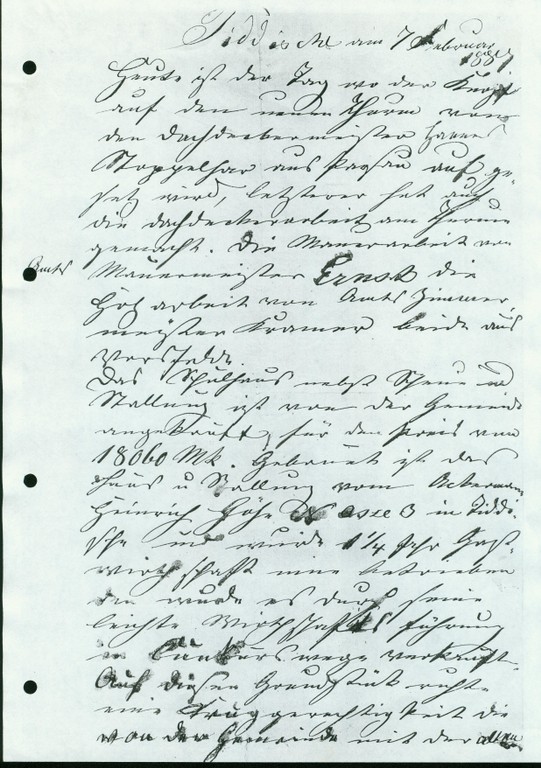 Tiddische am 7 Februar
1887
Heute ist der Tag wo der Knopf
auf den neuen Thurm von
den Dachdeckermeister Hannes
Stoppelhar aus Passau auf ge-
setz wird, letzterer hat auch
die Dachdeckerarbeit am Thurme
gemacht. Die Mauerarbeit von
Amts Mauermeister Ernst die
Holzarbeit von Amts Zimmer
meister Kramer beide aus
Vorsfelde.
Das Schulhaus nebst Scheune und
Stallung ist von der Gemeinde
angekauft, für den Preis von
18060 Mk. Gebauet ist das
Haus u Stallung vom Ackermann
Heinrich in Tiddi-
sche und wurde 1 1/4 Jahr Gast-
wirthschaft eine betrieben
da wurde es durch seine
leichte Wirthschafts führung
in Conkurs wege verkauft.
Auf diesen Grundstück ruht
eine Kruggerechtigkeit die
von der Gemeinde mit der alten